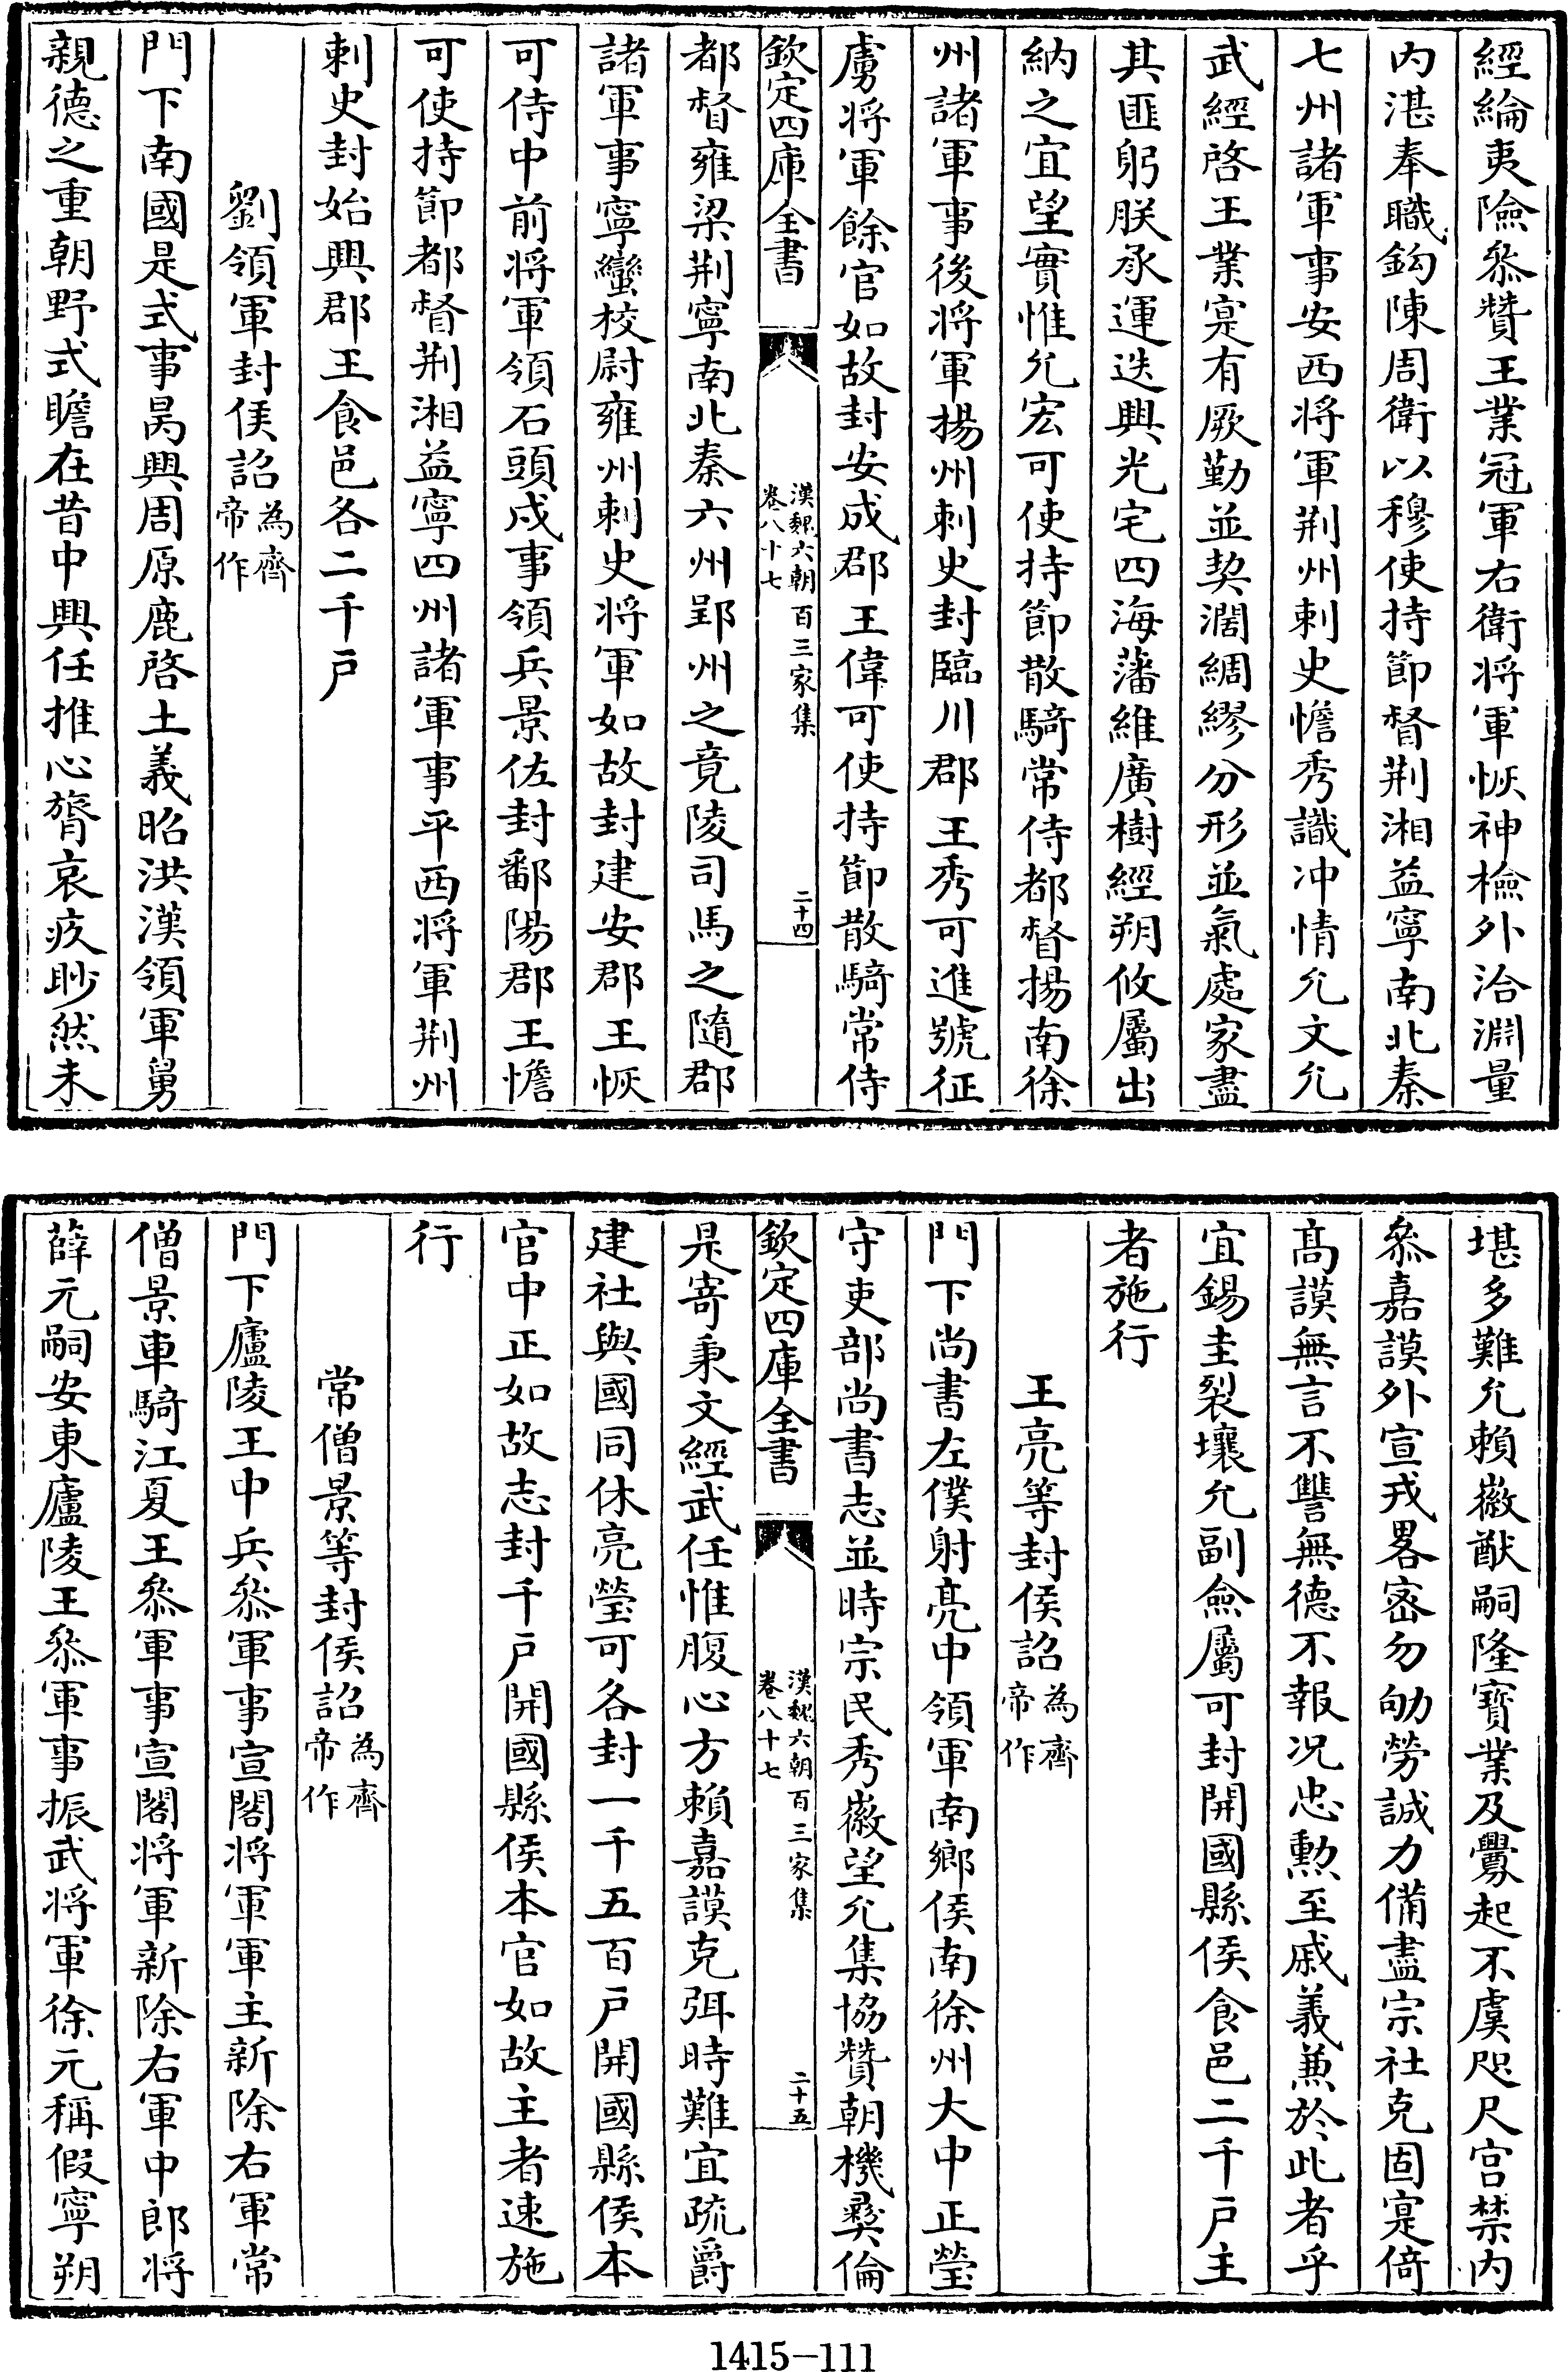 經綸夷險叅贊王業冠軍右衛将軍恢神檢外洽淵量
内湛奉職鈎陳周衛以穆使持節督荆湘益寧南北秦
七州諸軍事安西将軍荆州刺史憺秀識冲情允文允
武經啓王業寔有厥勤並契濶綢繆分形並氣處家盡
其匪躬朕承運迭興光宅四海藩維廣樹經朔攸屬出
納之宜望實惟允宏可使持節散騎常侍都督揚南徐
州諸軍事後将軍揚州刺史封臨川郡王秀可進號征
虜将軍餘官如故封安成郡王偉可使持節散騎常侍
欽定四庫全書
漢魏六朝百三家集
卷八十七
二十四
都督雍梁荆寧南北秦六州郢州之竟陵司馬之隨郡
諸軍事寧蠻校尉雍州刺史将軍如故封建安郡王恢
可侍中前将軍領石頭戍事領兵景佐封鄱陽郡王憺
可使持節都督荆湘益寧四州諸軍事平西将軍荆州
刺史封始興郡王食邑各二千戸
劉領軍封侯詔為齊帝作
門下南國是式事昺興周原鹿啓土義昭洪漢領軍舅
親德之重朝野式瞻在昔中興任推心膂哀疚眇然未
堪多難允賴徽猷嗣隆寳業及釁起不虞咫尺宫禁内
叅嘉謨外宣戎畧密勿劬勞誠力備盡宗社克固寔倚
髙謨無言不讐無德不報况忠勲至戚義兼於此者乎
宜錫圭裂壤允副僉屬可封開國縣侯食邑二千戸主
者施行
王亮等封侯詔為齊帝作
門下尚書左僕射亮中領軍南鄉侯南徐州大中正瑩
守吏部尚書志並時宗民秀徽望允集協贊朝機彛倫
欽定四庫全書
漢魏六朝百三家集
卷八十七
二十五
是寄秉文經武任惟腹心方賴嘉謨克弭時難宜疏爵
建社與國同休亮瑩可各封一千五百戸開國縣侯本
官中正如故志封千戸開國縣侯本官如故主者速施
行
常僧景等封侯詔為齊帝作
門下廬陵王中兵叅軍事宣閣将軍軍主新除右軍常
僧景車騎江夏王叅軍事宣閣将軍新除右軍中郎将
薛元嗣安東廬陵王叅軍事振武将軍徐元稱假寧朔
1415-111